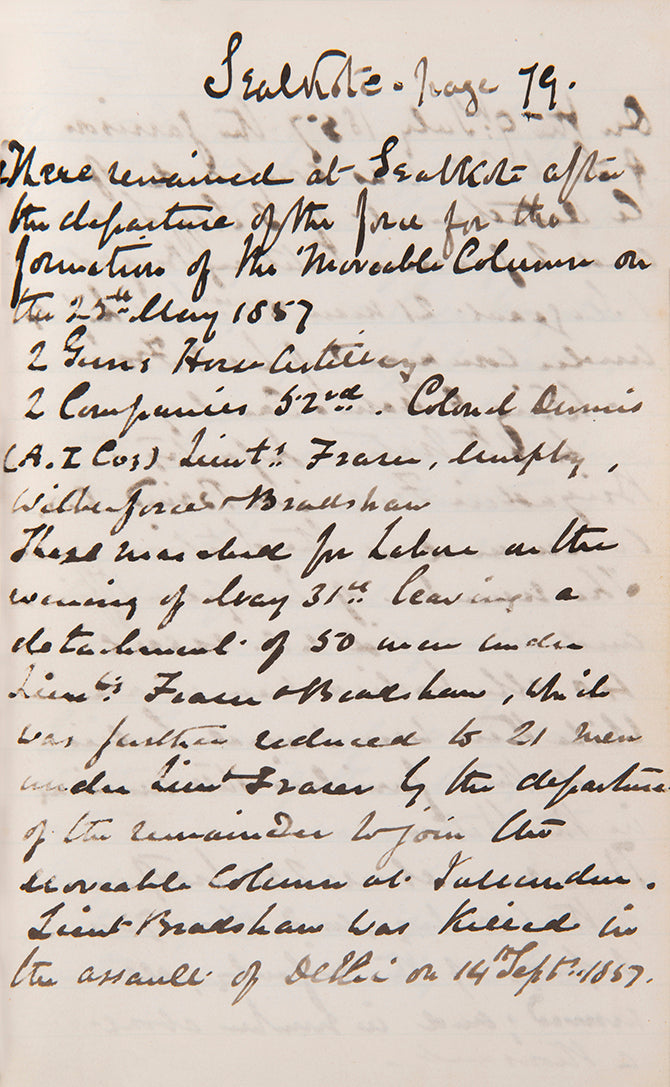 Sealkote. page 79.
There remained at Sealkote after
the departure of the force for the
formation of the Moveable Column on
the 25th May 1857
2 Guns Horse Artillery
2 Companies 52nd. Colonel Dennis
(A. I Coy) Lieuts. Fraser,
Wilberforce & Bradshaw
These marched for Lahore on the
evening of May 31st leaving a
detachment of 50 men under
Lieuts. Fraser & Bradshaw, which
was further reduced to 21 men
under Lieut Fraser by the departure
of the remainder to join the
Moveable Column at Jullundur.
Lieut Bradshaw was killed in
the assault of Delhi on 14th Sept. 1857.